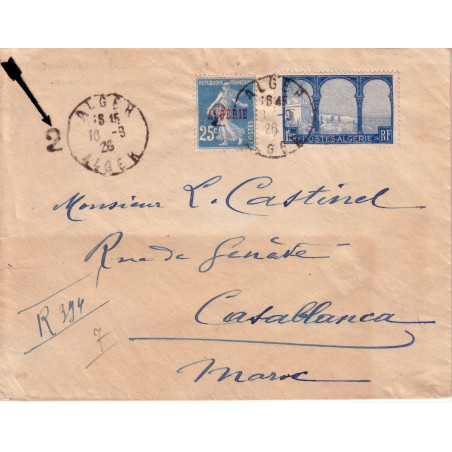 ALGER
18 45
10 - 9
26
ALGER
2
REPUBLIQUE FRANÇAISE
ALGERIE
25c
POSTES
ALGER
18 45
26
POSTES ALGERIE
RF
Monsieur L. Castinel
Rue de
Casablanca
Maroc
R 394
7